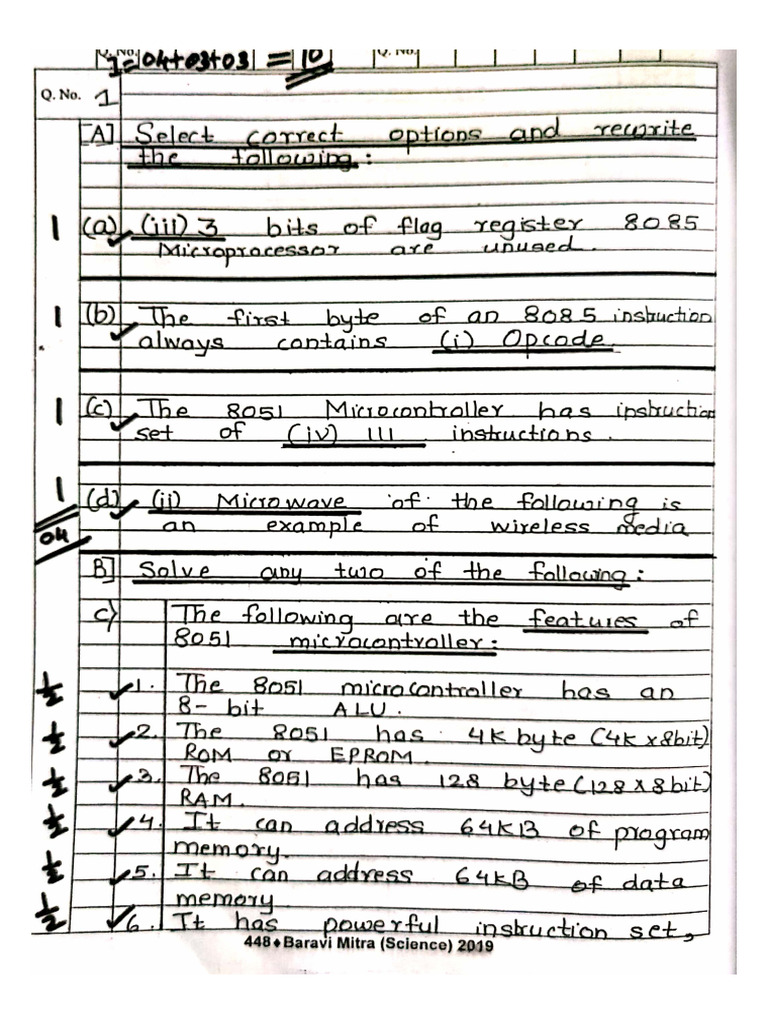 Q. No.
1=04+03+03 = 10
Q. No.
Q. No. 1
[A] Select correct options and rewrite
the following:
1 (a) (iii) 3 bits of flag register 8085
Microprocessor are unused.
1 (b) The first byte of an 8085 instruction
always contains (i) Opcode.
1 (c) The 8051 Microcontroller has instruction
set of (iv) 111 instructions.
1 (d) (ii) Microwave of the following is
04 an example of wireless media
B] Solve any two of the following:
c) The following are the features of
8051 microcontroller:
1/2 1. The 8051 microcontroller has an
8-bit ALU.
1/2 2. The 8051 has 4K byte (4K x 8bit)
ROM or EPROM.
1/2 3. The 8051 has 128 byte (128 x 8bit)
RAM.
1/2 4. It can address 64KB of program
memory.
1/2 5. It can address 64KB of data
memory
1/2 6. It has powerful instruction set,
448♦Baravi Mitra (Science) 2019